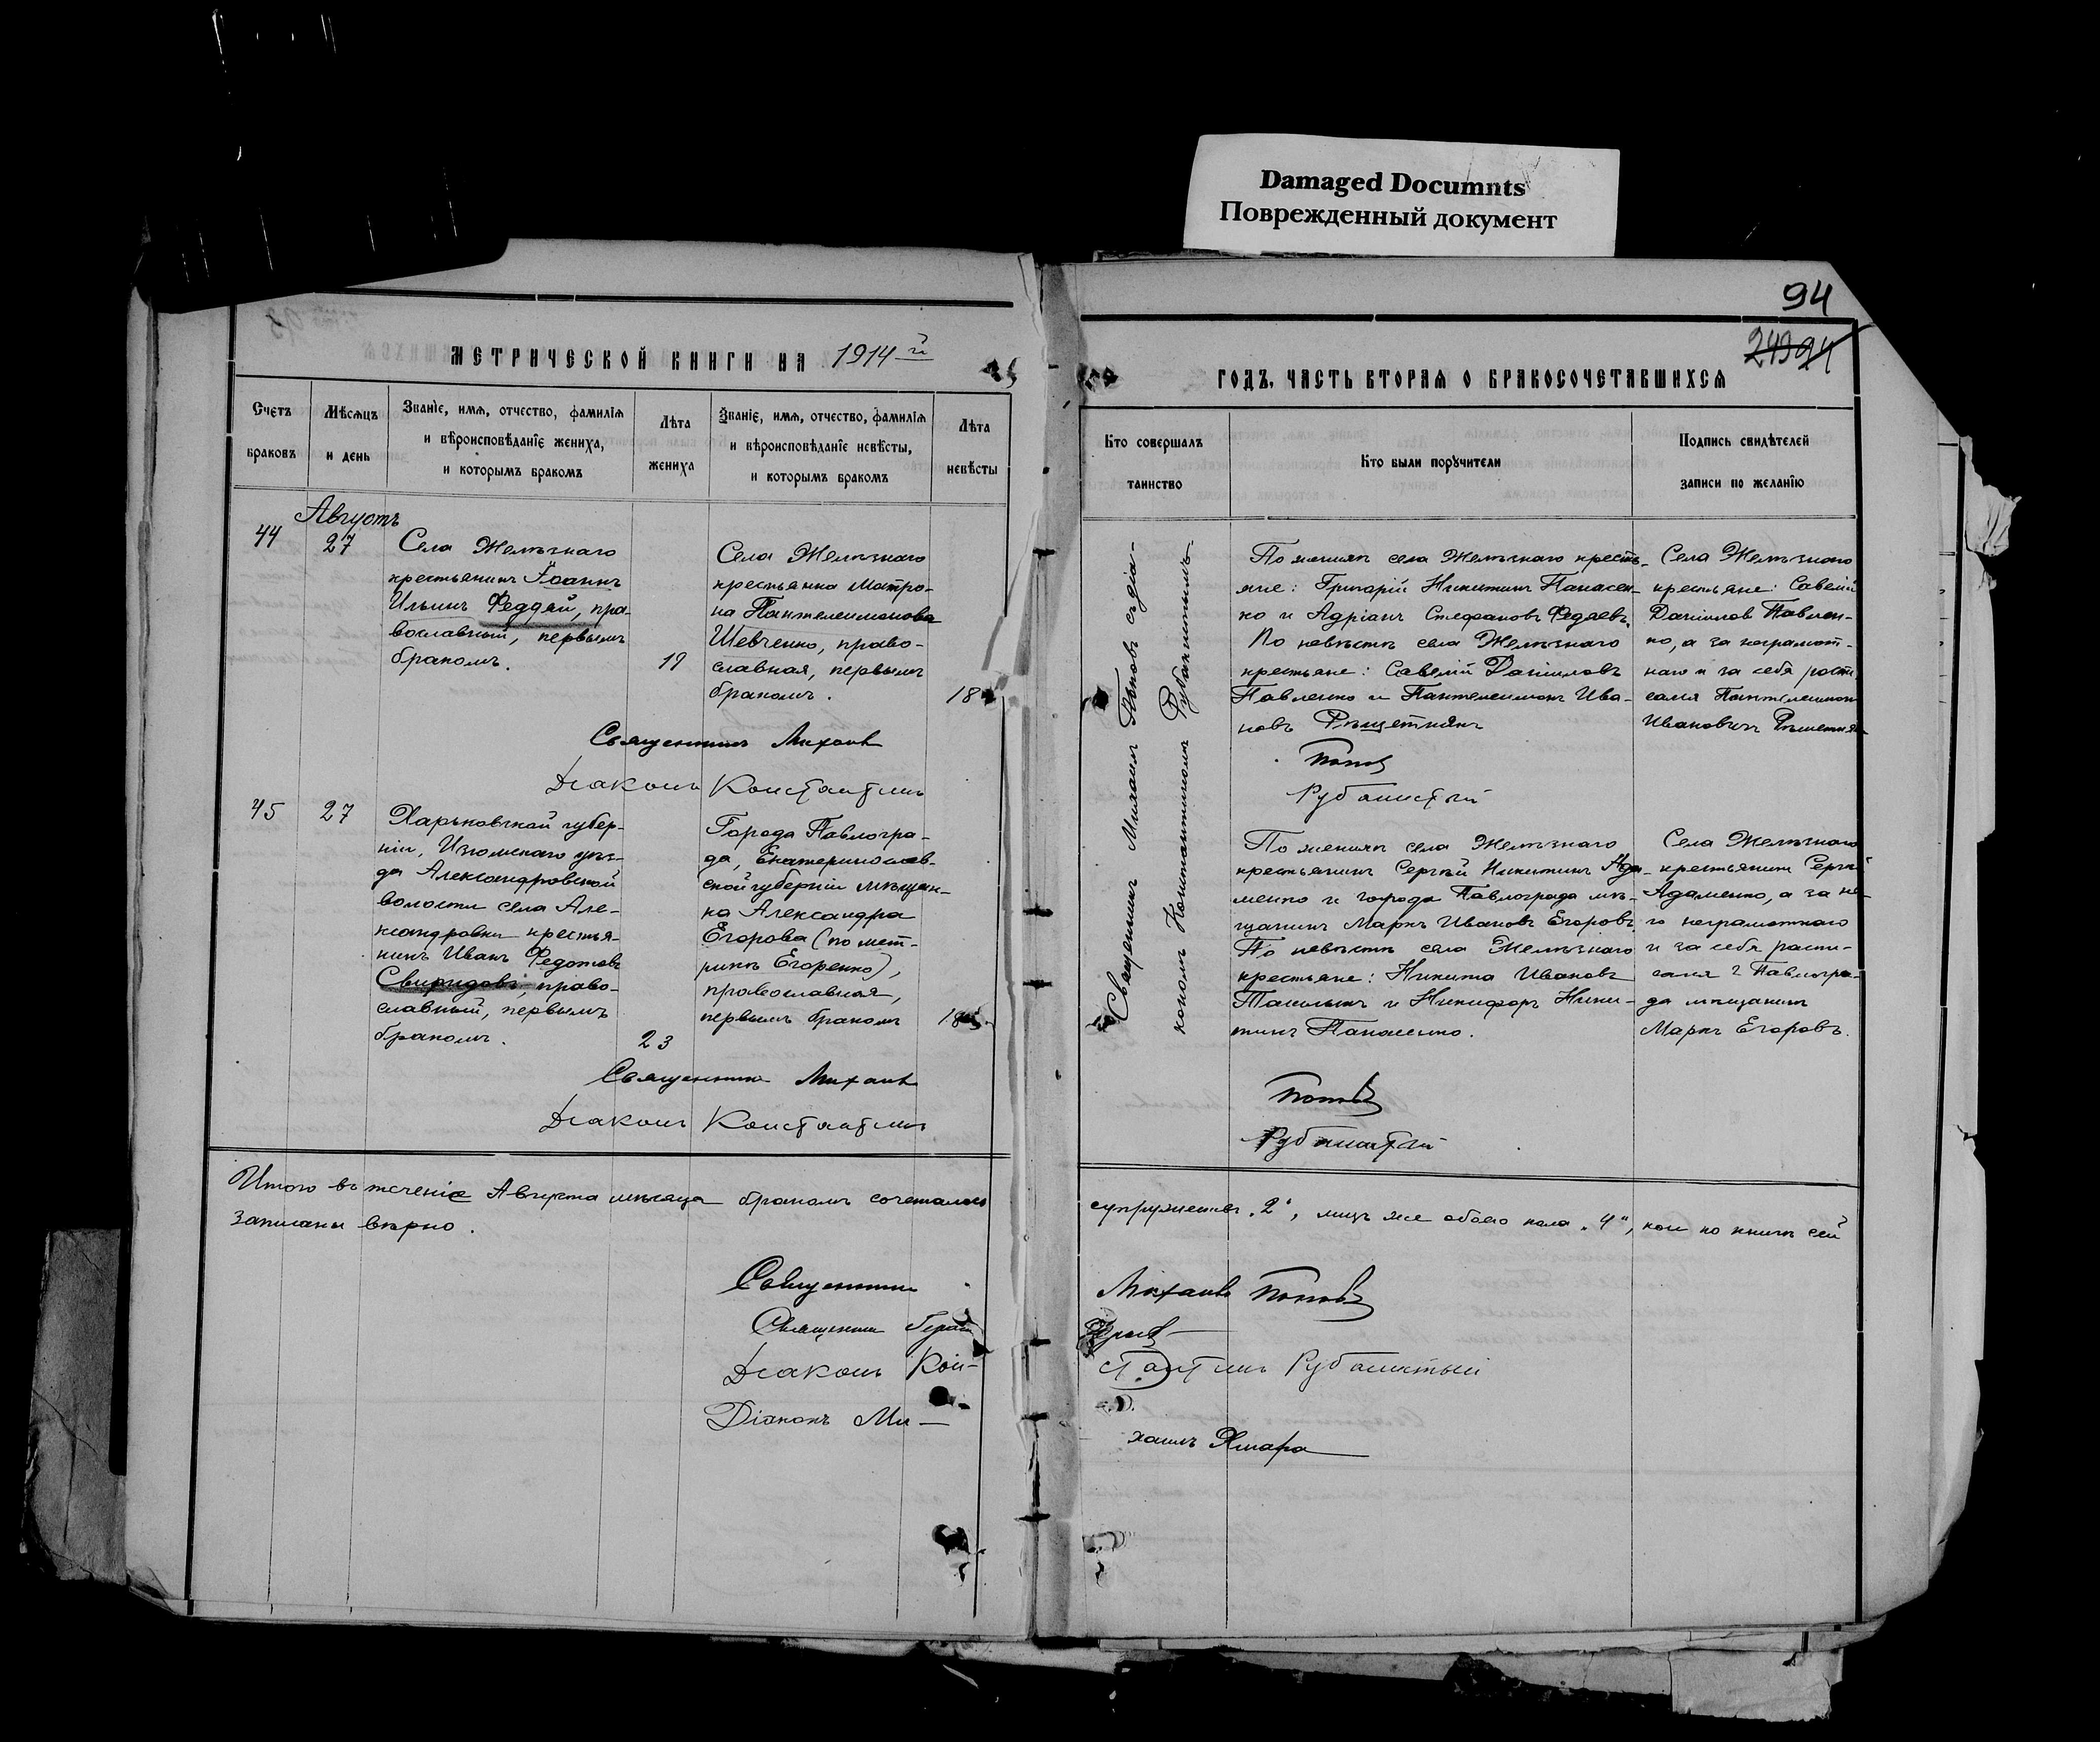 Damaged Documnts
Поврежденный документ
94
24394
МЕТРИЧЕСКОЙ КНИГИ НА 1914й
ГОДЪ, ЧАСТЬ ВТОРАЯ О БРАКОСОЧЕТАВШИХСЯ
Счетъ
браковъ
Мѣсяцъ
и день
Званіе, имя, отчество, фамилія
и вѣроисповѣданіе жениха,
и которымъ бракомъ
Лѣта
жениха
Званіе, имя, отчество, фамилія
и вѣроисповѣданіе невѣсты,
и которымъ бракомъ
Лѣта
невѣсты
Кто совершалъ
таинство
Кто были поручители
Подпись свидѣтелей
записи по желанію
44
Августъ
27
Села Желѣзнаго
крестьянинъ Іоаннъ
Ильинъ Феддяй, пра-
вославный, первымъ
бракомъ.
19
Села Желѣзнаго
крестьянка Матро-
на Пантелеимонова
Шевченко, право-
славная, первымъ
бракомъ.
18
Священникъ Михаилъ
Діаконъ Константинъ
Священникъ Михаилъ Поповъ съ діа-
кономъ Константиномъ Рубашитымъ
По женихѣ села Желѣзнаго кресть-
яне: Григорій Никитинъ Панасен-
ко и Адріанъ Стефановъ Федяевъ.
По невѣстѣ села Желѣзнаго
крестьяне: Савелій Даниловъ
Павленко и Пантелеимонъ Ива-
новъ Рѣшетнякъ
Поповъ
Рубашитый
Села Желѣзнаго
крестьяне: Савелій
Даниловъ Павлен-
ко, а за неграмот-
наго и за себя роспи
сался Пантелеимонъ
Ивановичъ Рѣшетняк
45
27
Харьковской губер-
ніи, Изюмскаго уѣз-
да Александровской
волости села Але-
ксандровки крестья-
нинъ Иванъ Федотовъ
Свиридовъ, право-
славный, первымъ
бракомъ.
23
Города Павлогра-
да, Екатеринослав-
ской губерніи мѣщан-
ка Александра
Егорова (по мет-
рикѣ Егоренко),
православная,
первымъ бракомъ
18
Священникъ Михаилъ
Діаконъ Константинъ
По женихѣ села Желѣзнаго
крестьянинъ Сергѣй Никитинъ Ада-
менко и города Павлограда мѣ-
щанинъ Маркъ Ивановъ Егоровъ.
По невѣстѣ села Желѣзнаго
крестьяне: Никита Ивановъ
и Никифоръ Ники-
тинъ Панасенко.
Поповъ
Рубашитый
Села Желѣзнаго
крестьянинъ Сергѣй
Адаменко, а за не-
го неграмотнаго
и за себя распи-
сался г Павлогра-
да мѣщанинъ
Маркъ Егоровъ.
Итого въ теченіе Августа мѣсяца бракомъ сочеталось супружествъ „2“, лицъ же обоего пола „4“, кои по книгѣ сей
записаны вѣрно.
Священникъ Михаилъ Поповъ
Священникъ
Діаконъ Кон- стантинъ Рубашитый
Діаконъ Ми- хаилъ Хмара